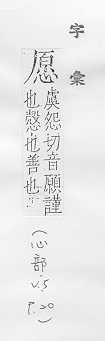 字彙
愿
虞怨切音願謹
也愨也善也
(心部
v.5
P.20)